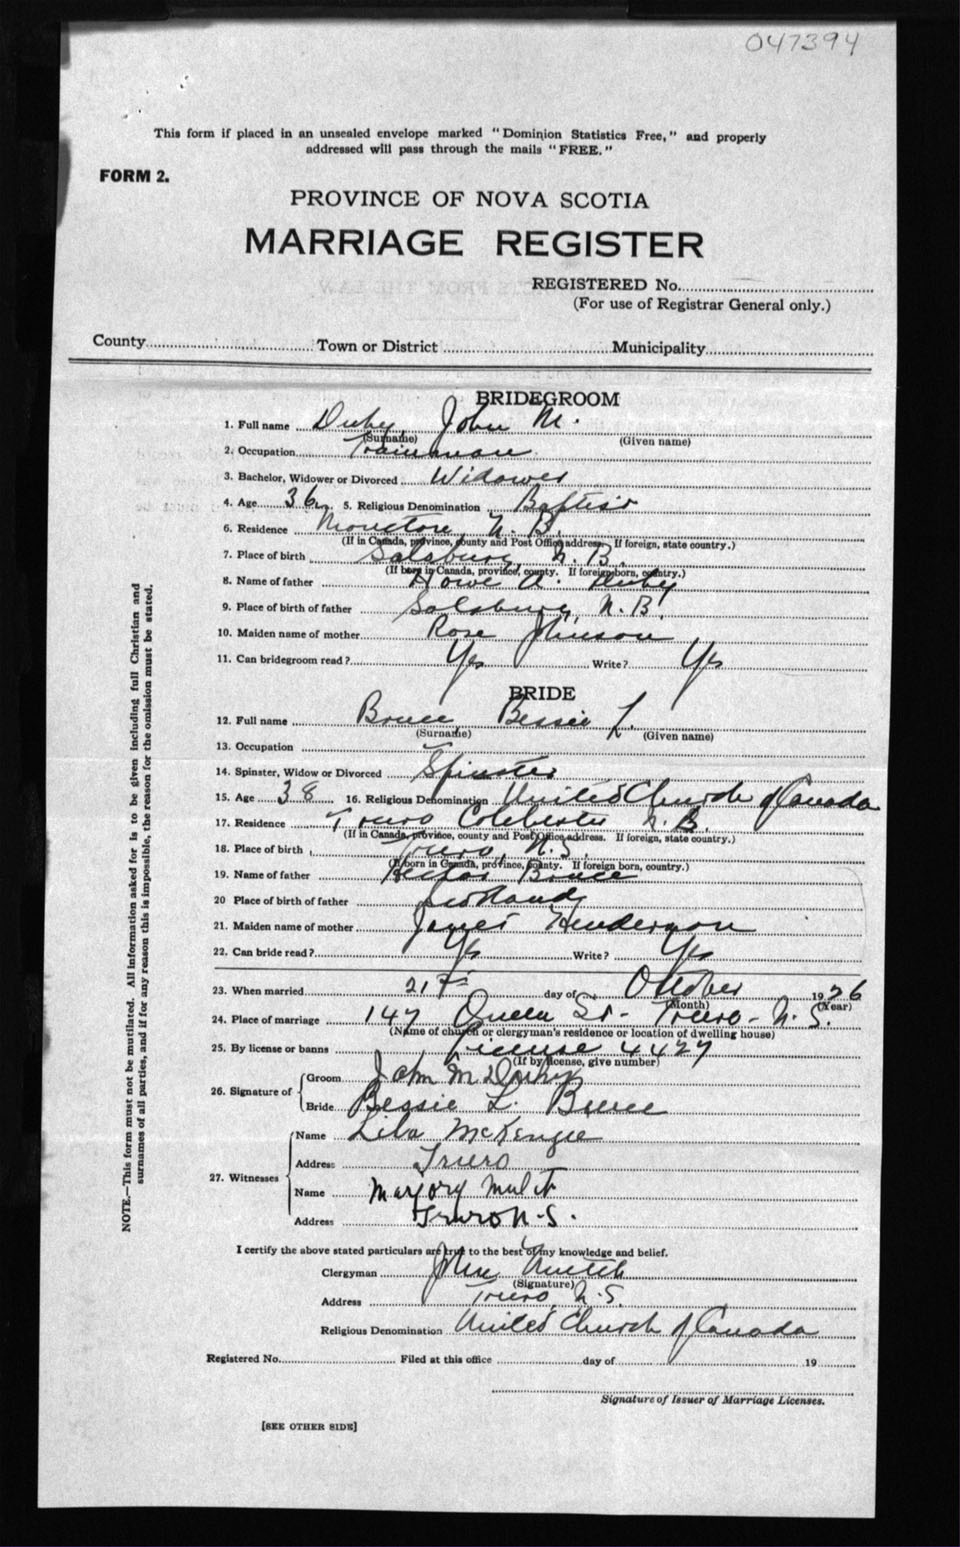 047394
This form if placed in an unsealed envelope marked "Dominion Statistics Free," and properly
addressed will pass through the mails "FREE."
FORM 2.
PROVINCE OF NOVA SCOTIA
MARRIAGE REGISTER
REGISTERED No.
(For use of Registrar General only.)
County Town or District Municipality
BRIDEGROOM
1. Full name Duby John M.
(Surname) (Given name)
2. Occupation Trainman
3. Bachelor, Widower or Divorced Widower
4. Age 36 5. Religious Denomination Baptist
6. Residence Moncton N. B.
(If in Canada, province, county and Post Office address. If foreign, state country.)
7. Place of birth Salsbury N. B.
(If born in Canada, province, county. If foreign born, country.)
8. Name of father Howe A. Duby
9. Place of birth of father Salsbury N. B.
10. Maiden name of mother Rose Johnson
11. Can bridegroom read? Yes Write? Yes
BRIDE
12. Full name Bruce Bessie L.
(Surname) (Given name)
13. Occupation
14. Spinster, Widow or Divorced Spinster
15. Age 38 16. Religious Denomination United Church of Canada
17. Residence Truro Colchester N. B.
(If in Canada, province, county and Post Office address. If foreign, state country.)
18. Place of birth Truro, N. S
(If born in Canada, province, county. If foreign born, country.)
19. Name of father Hector Bruce
20 Place of birth of father Scotland
21. Maiden name of mother Janet Henderson
22. Can bride read? Yes Write? Yes
23. When married 21st day of October 1926
(Month) (Year)
24. Place of marriage 147 Queen St - Truro - N. S.
(Name of church or clergyman's residence or location of dwelling house)
25. By license or banns License 4427
(If by license, give number)
26. Signature of Groom John M Duby
Bride Bessie L. Bruce
27. Witnesses
Name Lila McKenzie
Address Truro
Name Marjory
Address Truro N. S.
I certify the above stated particulars are true to the best of my knowledge and belief.
Clergyman John
(Signature)
Address Truro, N. S.
Religious Denomination United Church of Canada
Registered No. Filed at this office day of 19
Signature of Issuer of Marriage Licenses.
[SEE OTHER SIDE]
NOTE.—This form must not be mutilated. All information asked for is to be given including full Christian and
surnames of all parties, and if for any reason this is impossible, the reason for the omission must be stated.